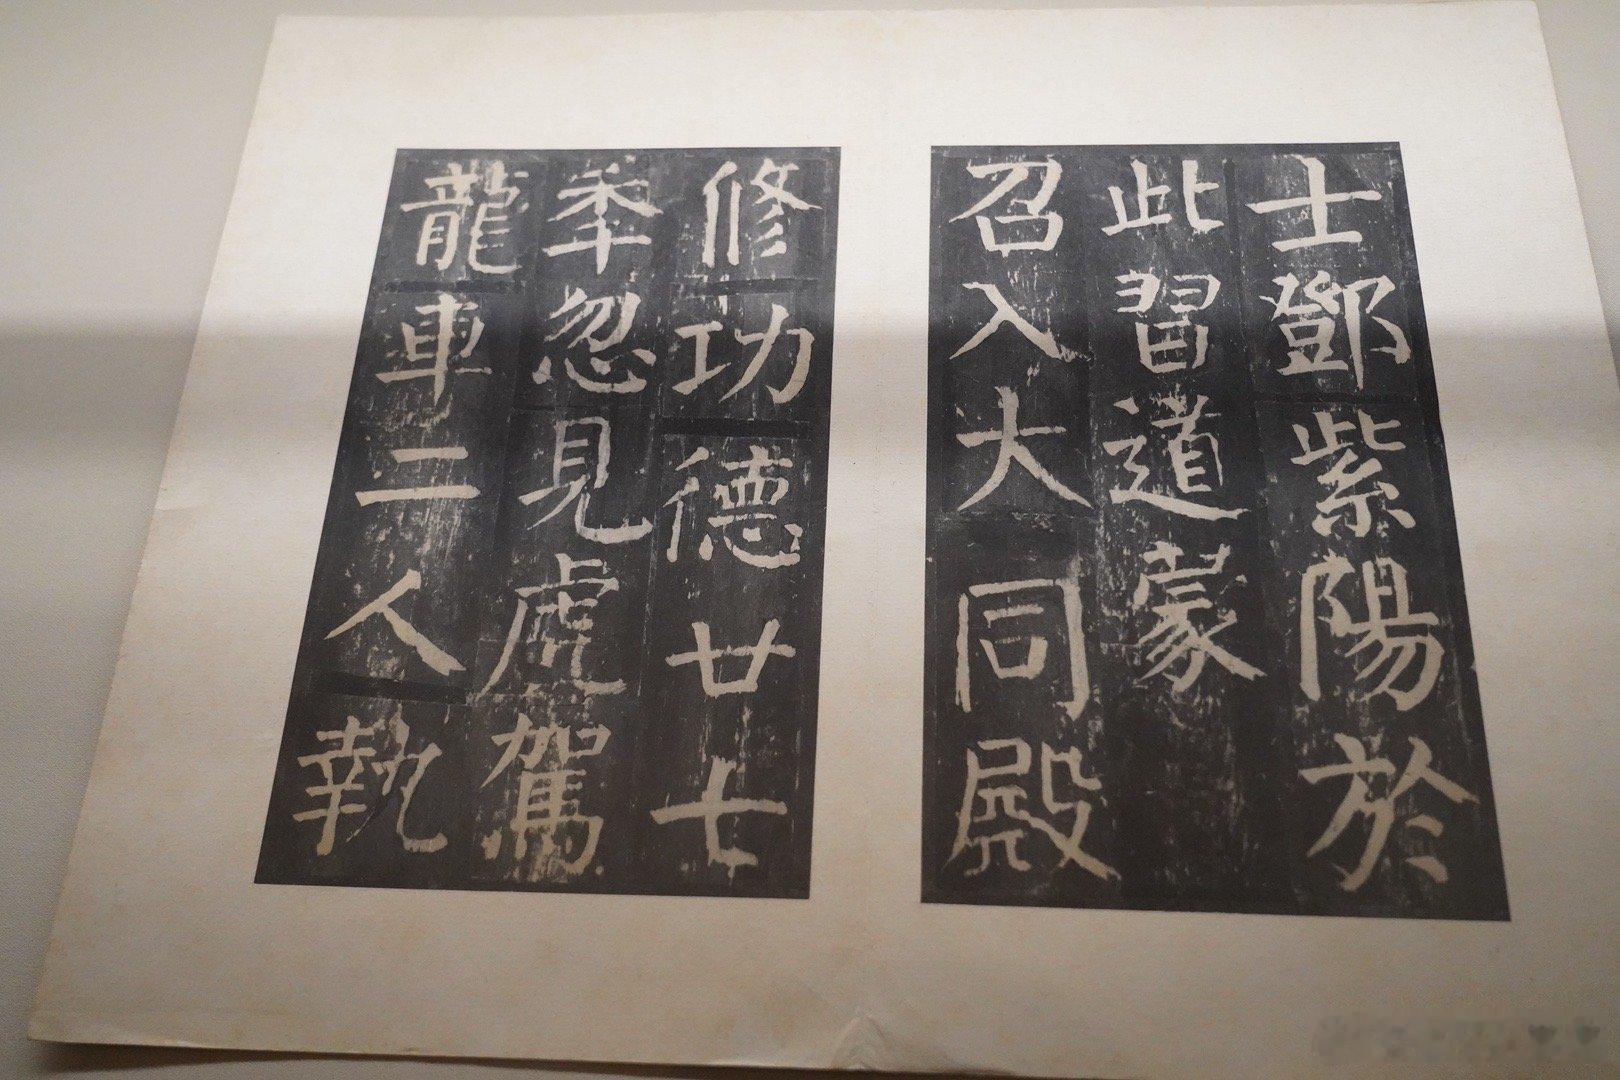 士鄧紫陽於
此習道蒙
召入大同殿
修功德廿七
秊忽見虎駕
龍車二人執